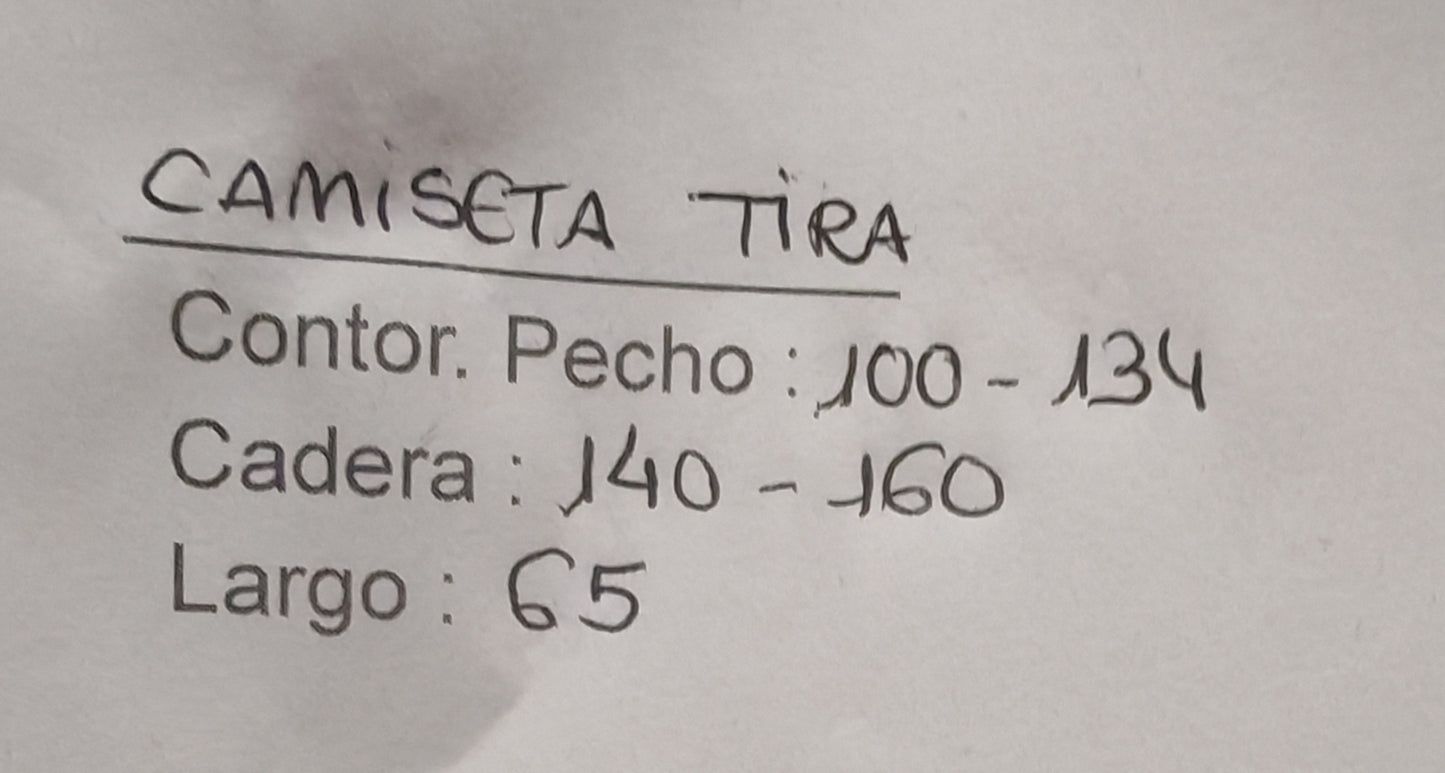 CAMISETA TIRA
Contor. Pecho : 100 - 134
Cadera : 140 - 160
Largo : 65